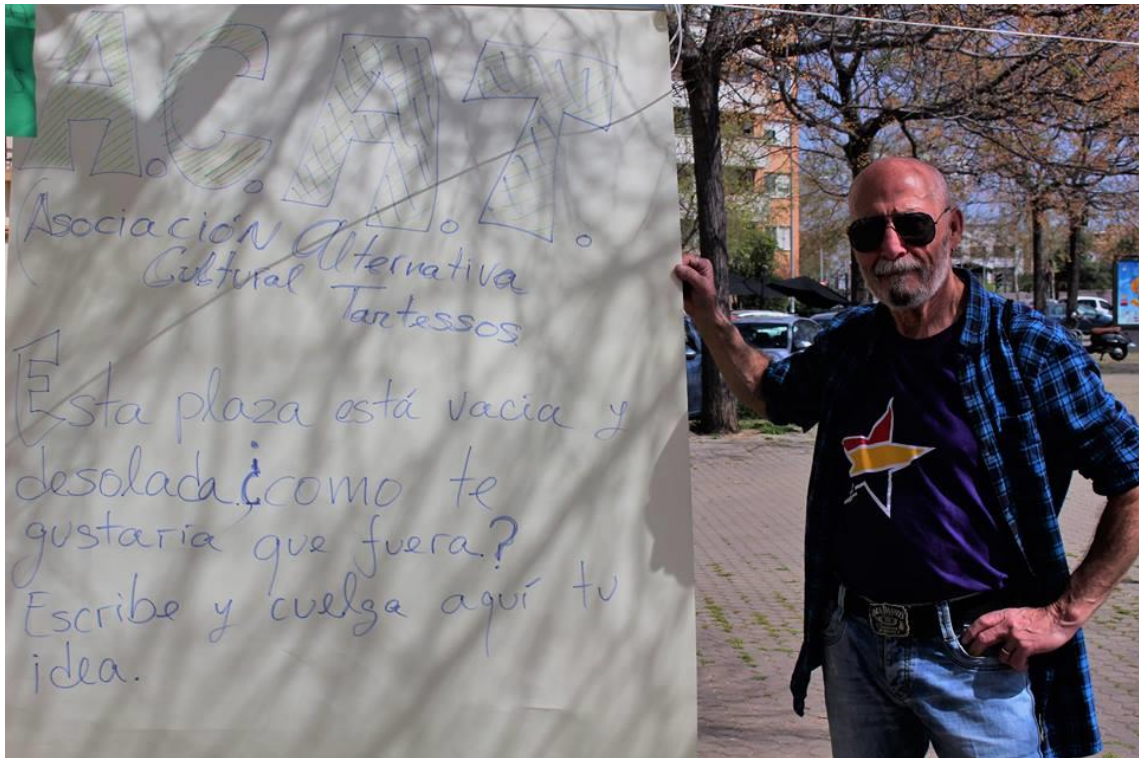 A.C.A.T.
(Asociación Alternativa
Cultural Tartessos
Esta plaza está vacia y
desolada ¿como te
gustaria que fuera?
Escribe y cuelga aquí tu
idea.